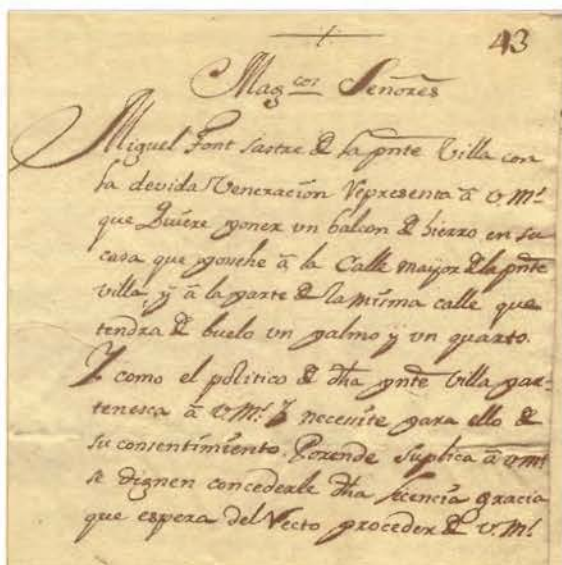 43
Mag.cos Señores
Miguel Font sastre de la pnte Villa con
la devida Veneracion Representa â v.Ms
que Quiere poner vn balcon de hierro en su
casa que posehe â la Calle mayor de la pnte
villa, ÿ â la parte de la misma calle que
tendra de buelo vn palmo ÿ vn quarto.
Y como el politico de dha pnte Villa par-
tenesca â v.Ms Y necessite para ello de
su consentimiento. Porende Suplica â v.ms
se dignen concederle dha licencia gracia
que espera del Recto proceder de v.Ms